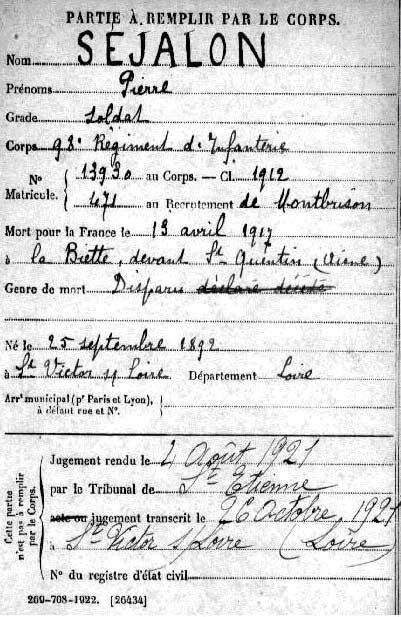 PARTIE À REMPLIR PAR LE CORPS.
Nom SEJALON
Prénoms Pierre
Grade soldat
Corps 98e Régiment d'Infanterie
No 13930 au Corps. — Cl. 1912
Matricule. 471 au Recrutement de Montbrison
Mort pour la France le 13 avril 1917
à la Biette, devant St Quentin (Aisne)
Genre de mort Disparu déclaré décédé
Né le 25 septembre 1892
à St Victor s/ Loire Département Loire
Arrt municipal (pr Paris et Lyon),
à défaut rue et No.
Cette partie
n'est pas à remplir
par le Corps.
Jugement rendu le 2 Août 1921
par le Tribunal de St Etienne
acte ou jugement transcrit le 26 Octobre 1921
à St Victor s/Loire (Loire)
No du registre d'état civil
269-708-1922. [26434]